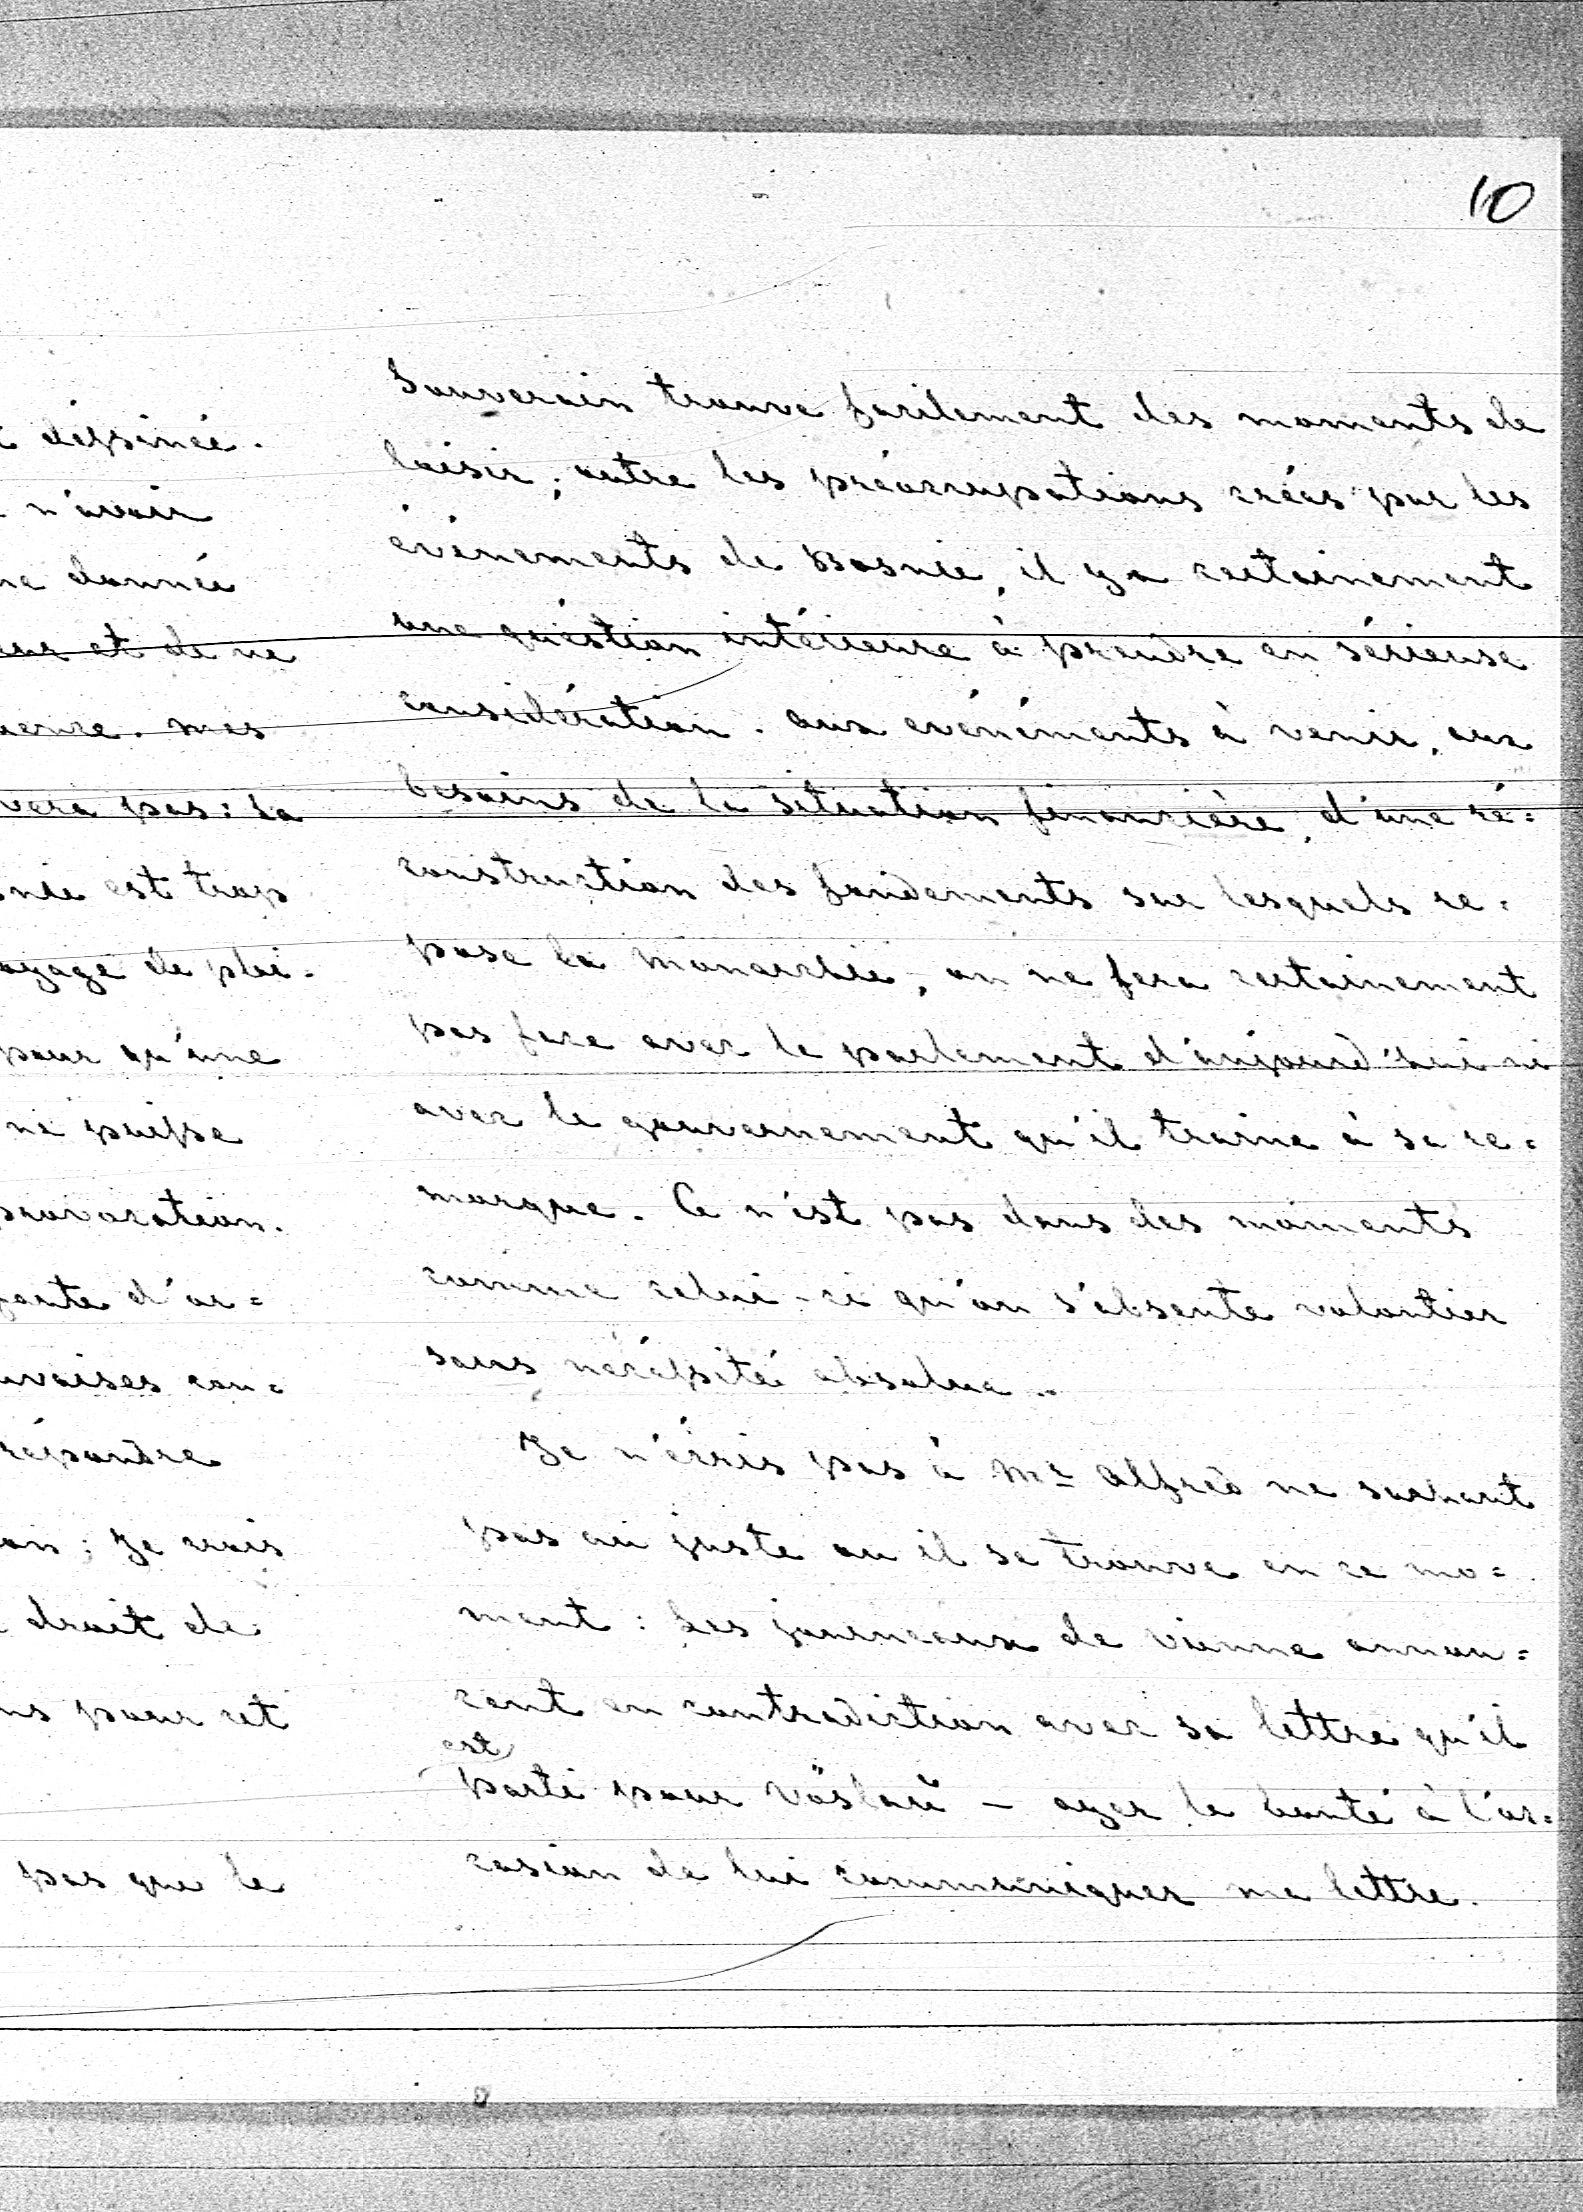 10
t dessinée.
n'avoir
ne donnée
eur et de ne
uence. mes
vera pas : La
snie est trop
oyage de plai-
pour qu'une
ne puisse
provocation.
faute d'oc=
uvaises con=
répandre
on ; Je crois
droit de
ns pour cet
pas que le
Souverain trouve facilement des moments de
loisir ; outre les préoccupations créés par les
événements de Bosnie, il y a certainement
une quéstion intérieure à prendre en sérieuse
considération. aux evénéments à venir, aux
besoins de la situation financière, d'une ré=
construction des fondements sur lesquels re=
pose la monarchie, on ne fera certainement
pas face avec le parlement d'aujourd'hui ni
avec le gouvernement qu'il traine à sa re=
morque. Ce n'est pas dans des moments
comme celui-ci qu'on s'absente volontier
sans nécéssité absolue..
Je n'écris pas à Mr Alfred ne sachant
pas au juste ou il se trouve en ce mo=
ment : Les journeaux de vienne annon=
cent en contradiction avec sa lettre qu'il
est
parti pour Vöslaŭ – ayez la bonté à l'oc=
casion de lui communiquer ma lettre.